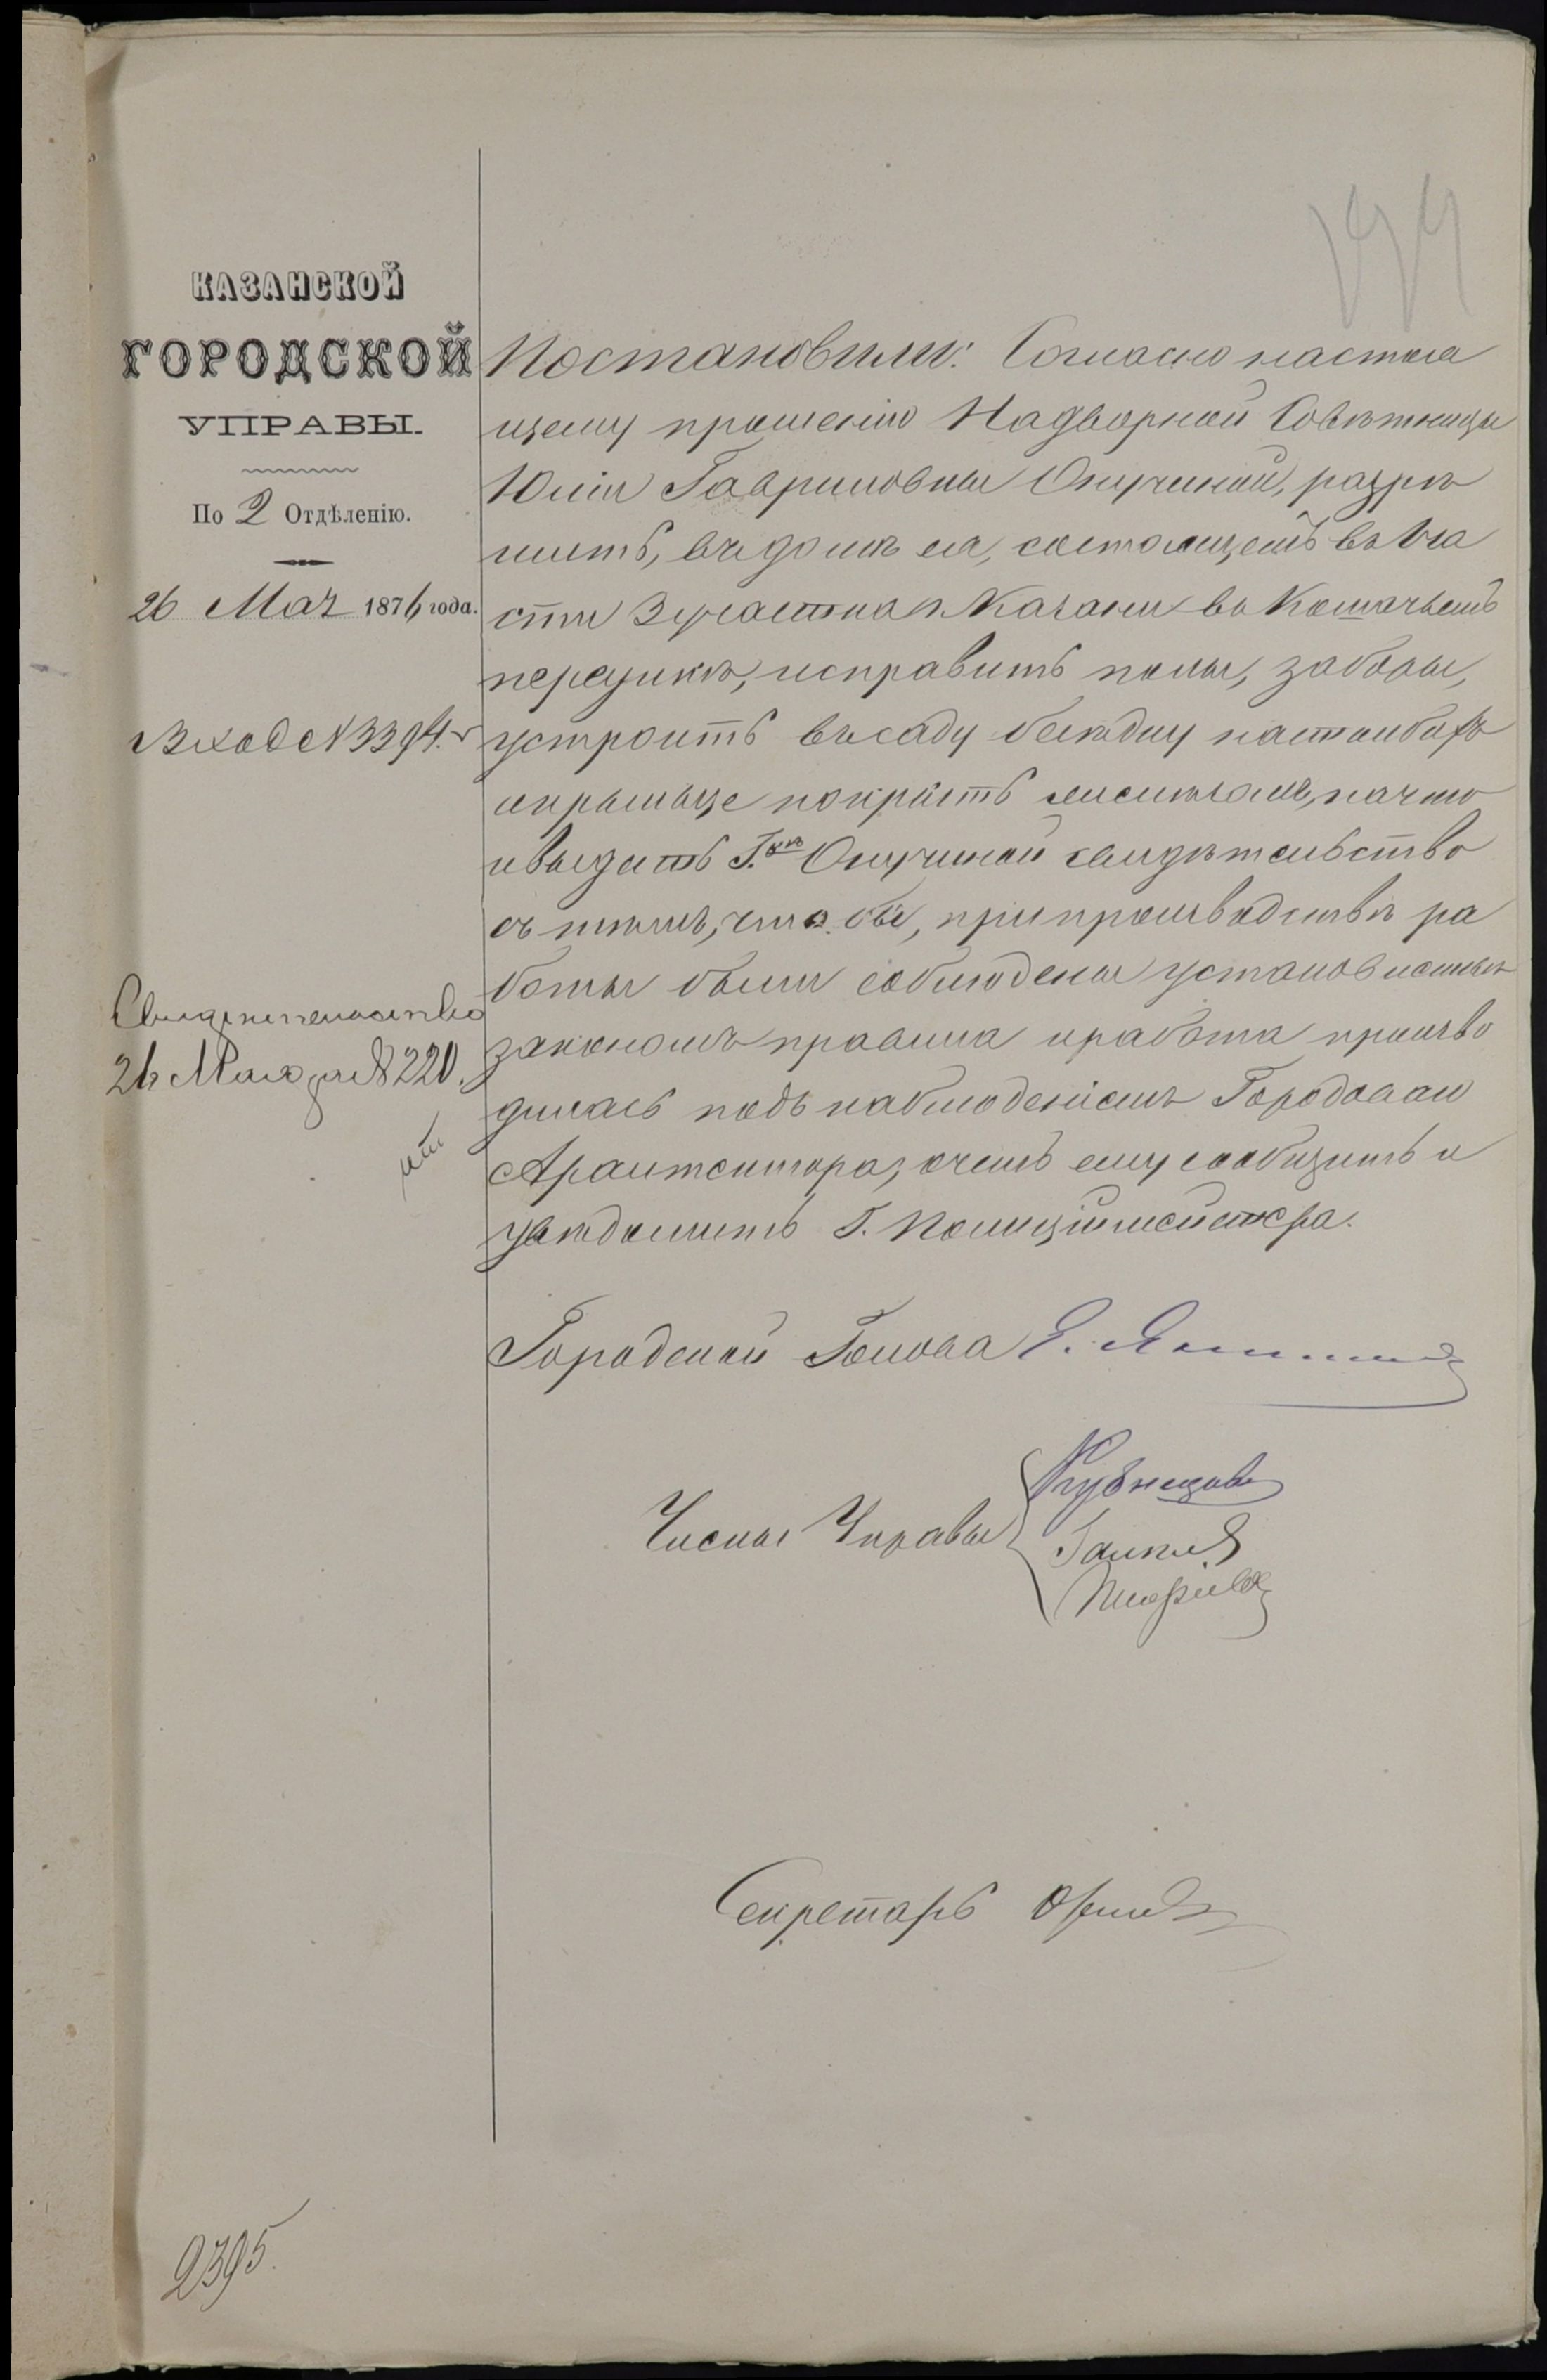 КАЗАНСКОЙ
ГОРОДСКОЙ
УПРАВЫ.
По 2 Отдѣленію.
26 Мая 1876 года.
Вход № 3394.
Свидетельство
26 Мая за № 220.
Постановили: Согласно настоя
щему прошенію Надворной Совѣтницы
Юліи Гавриловны Онучиной, разрѣ
шить, въ домѣ ея, состоящемъ въ 1 ча
сти 3 участка г. Казани въ Кошачьемъ
переулкѣ, исправить полы, заборы,
устроить въ саду бесѣдку на столбахъ
и крыльцо покрыть желѣзомъ, на что
и выдать Г.жѣ Онучиной свидѣтельство
съ тѣмъ, что бы, при производствѣ ра
боты были соблюдены установленныя
закономъ правила и работа произво
дилась подъ наблюденіемъ Городоваго
Архитектора, о чемъ ему сообщить и
увѣдомить Г. Полиційместера.
Городской Голова Е.
Члены Управы
Кузнецовъ
Галкин
Секретарь
2395.